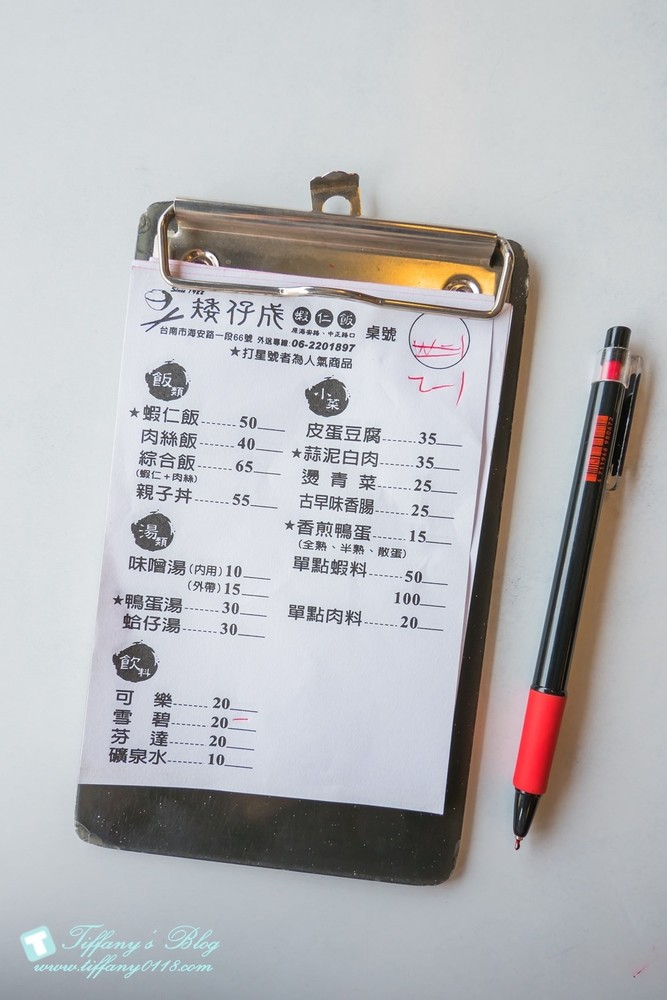 Since 1922
矮仔成 蝦仁飯
原海安路、中正路口 桌號
台南市海安路一段66號 外送專線:06-2201897
★打星號者為人氣商品
飯類
★蝦仁飯------50
肉絲飯------40
綜合飯------65
(蝦仁+肉絲)
親子丼------55
湯類
味噌湯(內用)10
(外帶)15
★鴨蛋湯------30
蛤仔湯------30
飲料
可樂------20
雪碧------20
芬達------20
礦泉水------10
小菜
皮蛋豆腐------35
★蒜泥白肉------35
燙青菜------25
古早味香腸------25
★香煎鴨蛋------15
(全熟、半熟、散蛋)
單點蝦料------50
100
單點肉料------20
Tiffany's Blog
www.tiffany0118.com